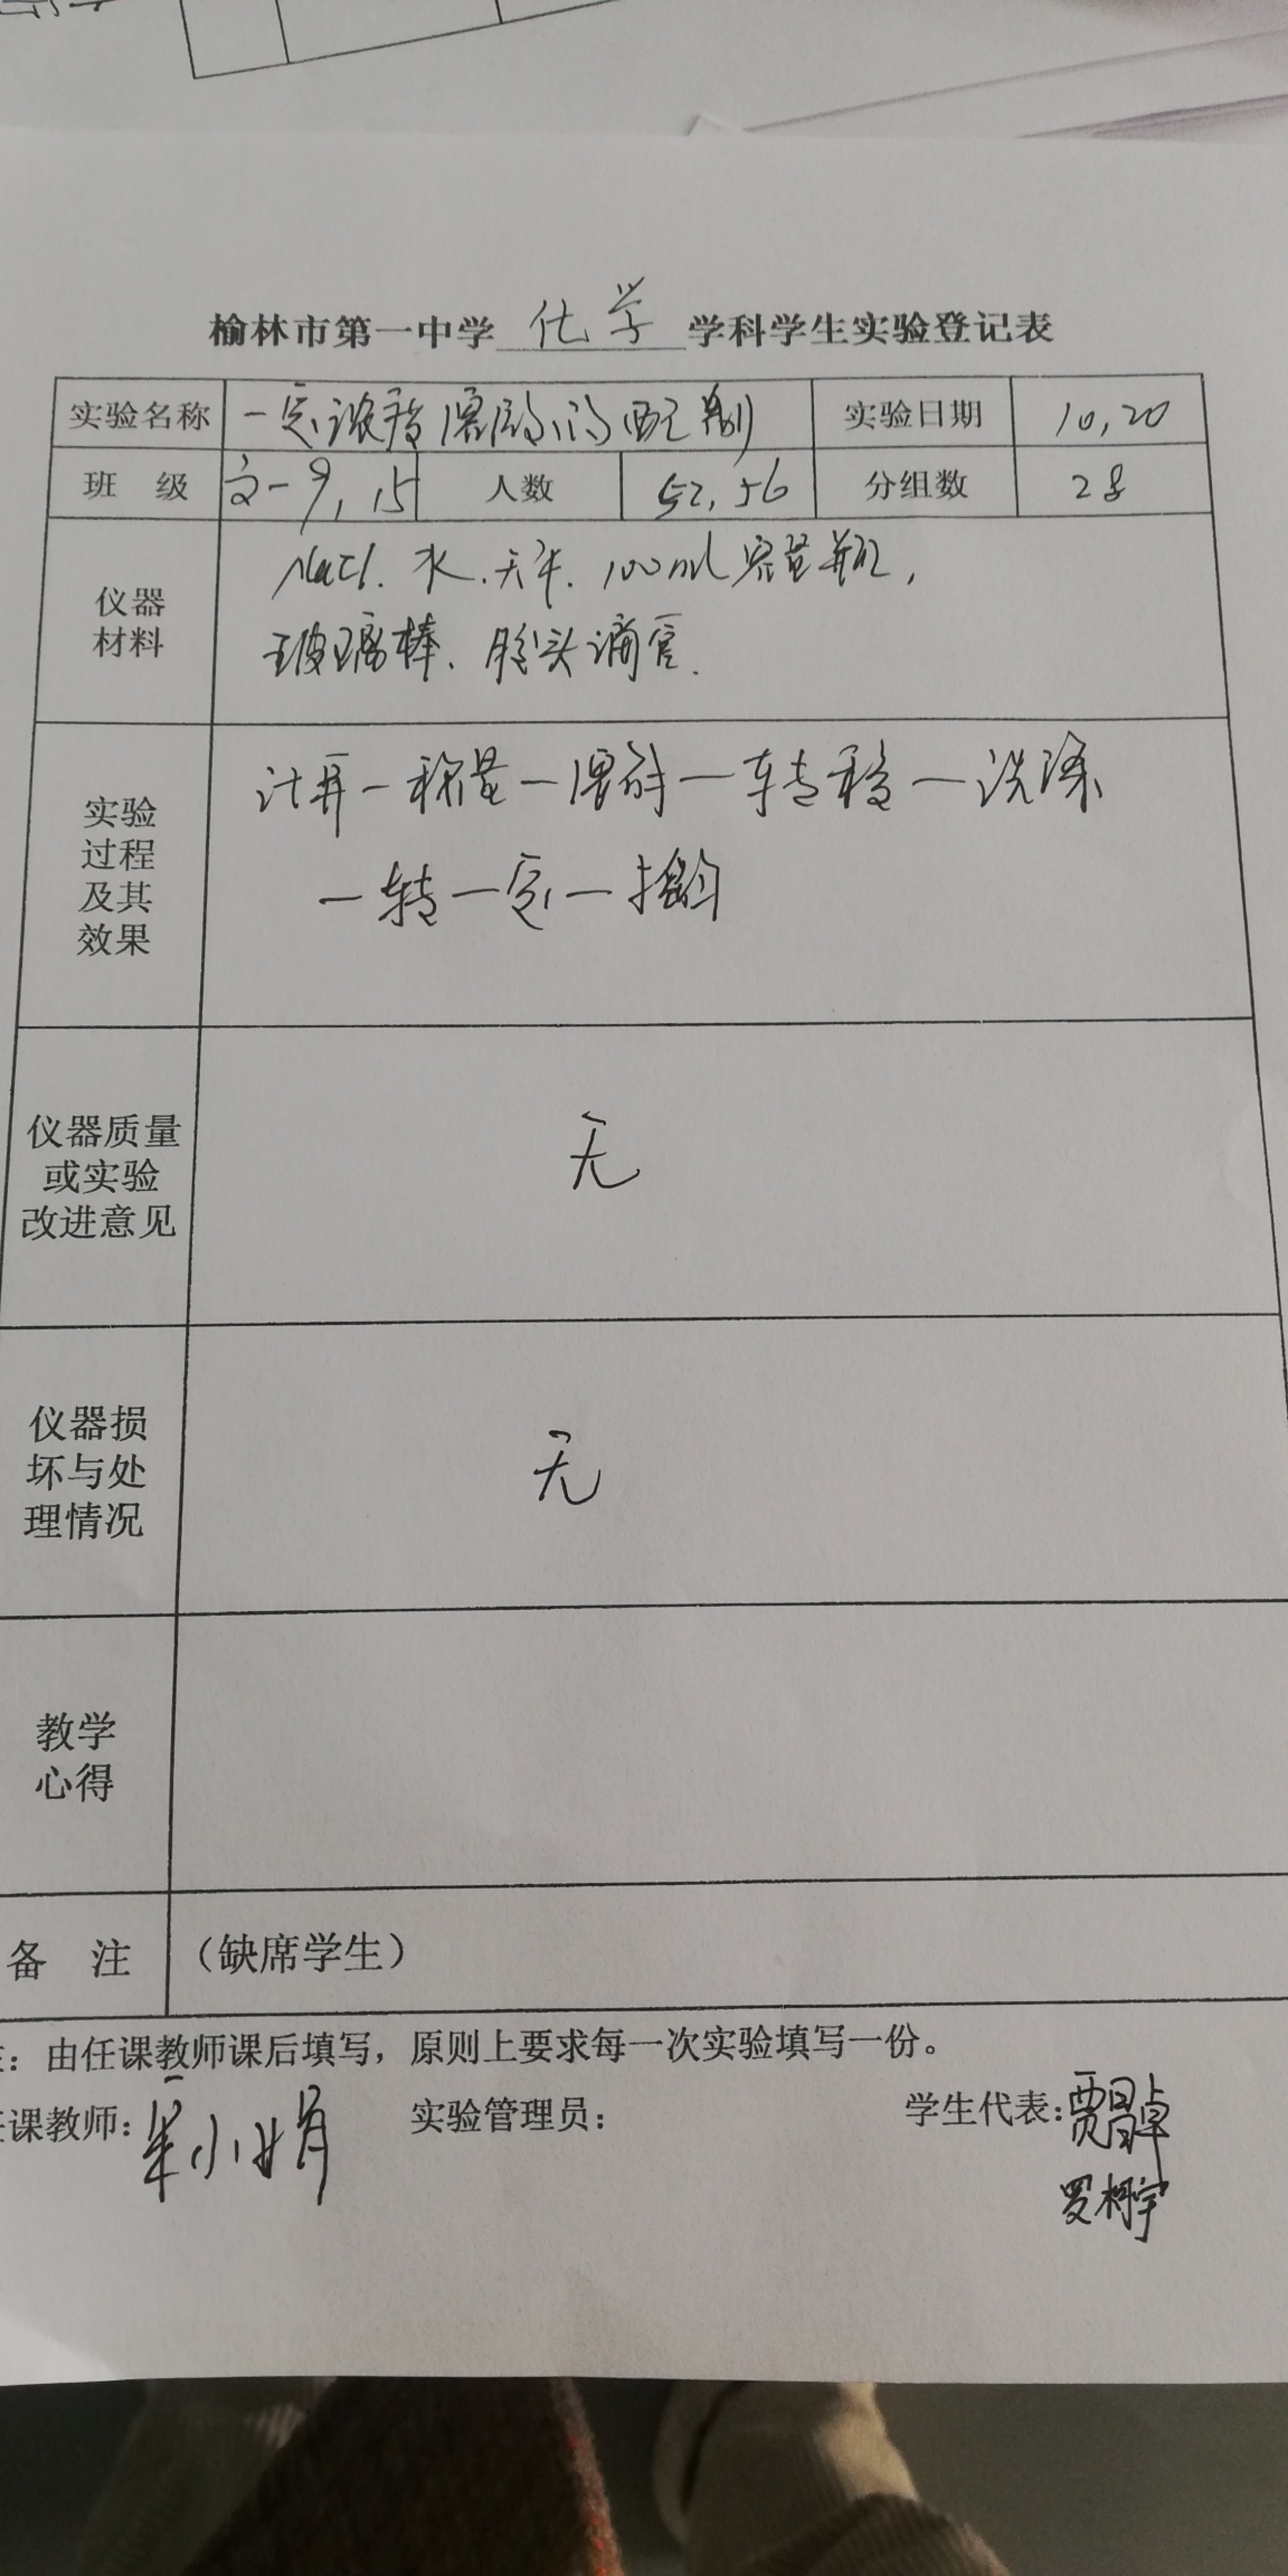 榆林市第一中学 化学 学科学生实验登记表
实验名称 一定浓度溶液的配制 实验日期 10,20
班 级 高一9,15 人数 52,56 分组数 28
仪器
材料
NaCl.水.天平.100ml容量瓶,
玻璃棒、胶头滴管.
实验
过程
及其
效果
计算一称量一溶解一转移一洗涤
一转一定一摇匀
仪器质量
或实验
改进意见
无
仪器损
坏与处
理情况
无
教学
心得
备 注 （缺席学生）
：由任课教师课后填写，原则上要求每一次实验填写一份。
课教师: 小娟 实验管理员： 学生代表:贾昌卓
罗柯宇